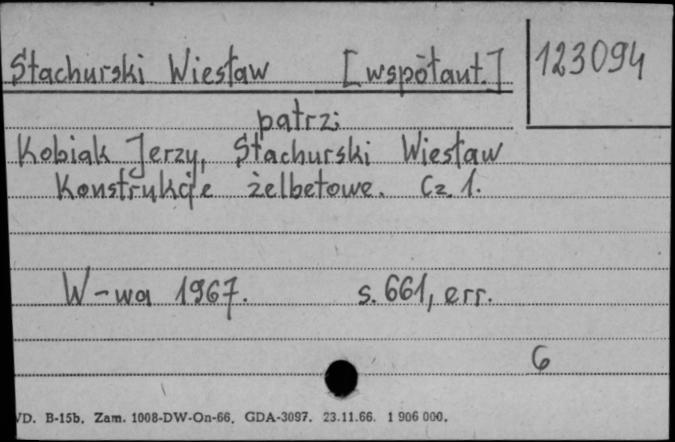 Stachurski Wiesław [współaut.] 123094
patrz:
Kobiak Jerzy, Stachurski Wiesław
Konstrukcje żelbetowe. Cz. 1.
W-wa 1967. s. 661, err.
6
VD. B-15b. Zam. 1008-DW-On-66. GDA-3097. 23.11.66. 1 906 000.